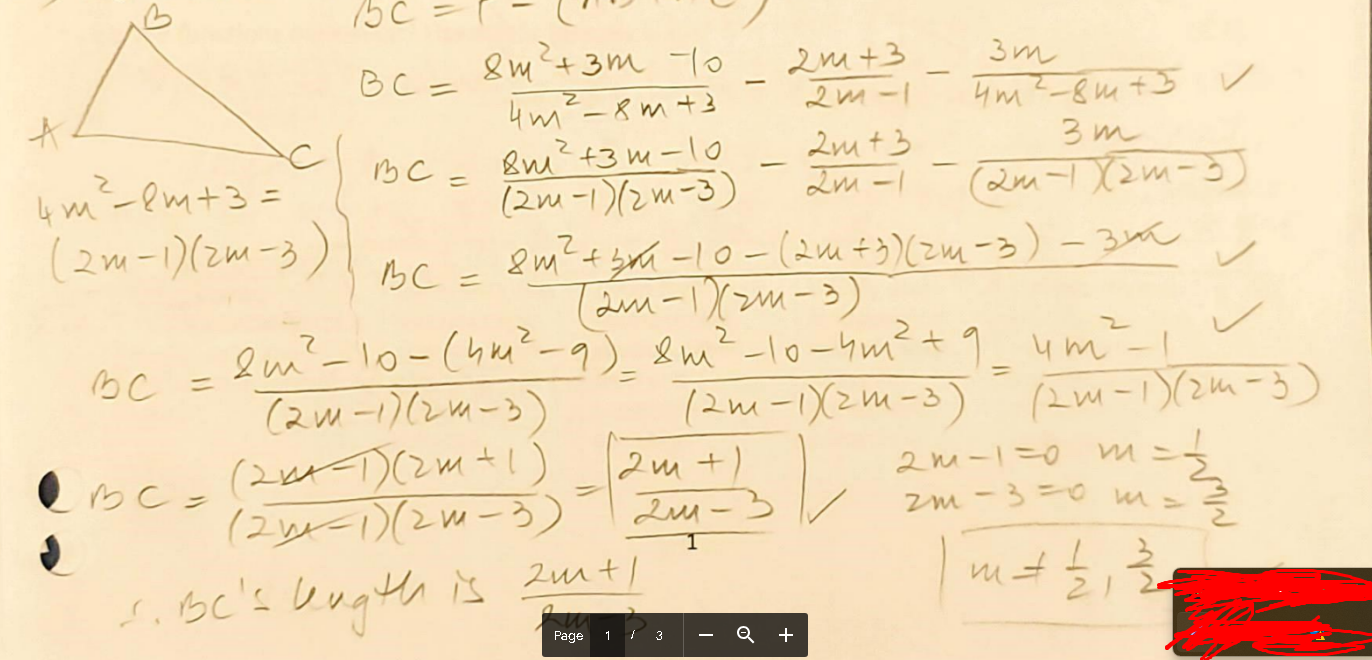 B
BC = P - (AB + AC)
BC = (8m² + 3m - 10)/(4m² - 8m + 3) - (2m + 3)/(2m - 1) - 3m/(4m² - 8m + 3) ✓
A
C
BC = (8m² + 3m - 10)/((2m - 1)(2m - 3)) - (2m + 3)/(2m - 1) - 3m/((2m - 1)(2m - 3))
4m² - 8m + 3 =
(2m - 1)(2m - 3)
BC = (8m² + 3m - 10 - (2m + 3)(2m - 3) - 3m)/((2m - 1)(2m - 3)) ✓
BC = (8m² - 10 - (4m² - 9))/((2m - 1)(2m - 3)) = (8m² - 10 - 4m² + 9)/((2m - 1)(2m - 3)) = (4m² - 1)/((2m - 1)(2m - 3)) ✓
BC = ((2m - 1)(2m + 1))/((2m - 1)(2m - 3)) = (2m + 1)/(2m - 3) ✓
2m - 1 = 0 m = 1/2
2m - 3 = 0 m = 3/2
1
m ≠ 1/2, 3/2
∴ BC's length is (2m + 1)/(2m - 3)
Page 1 / 3